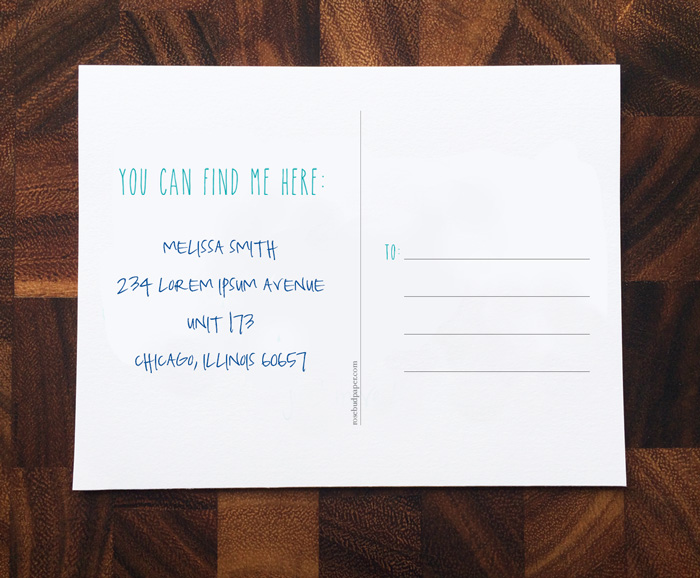 YOU CAN FIND ME HERE:
MELISSA SMITH
234 LOREM IPSUM AVENUE
UNIT 173
CHICAGO, ILLINOIS 60657
rosebudpaper.com
TO: